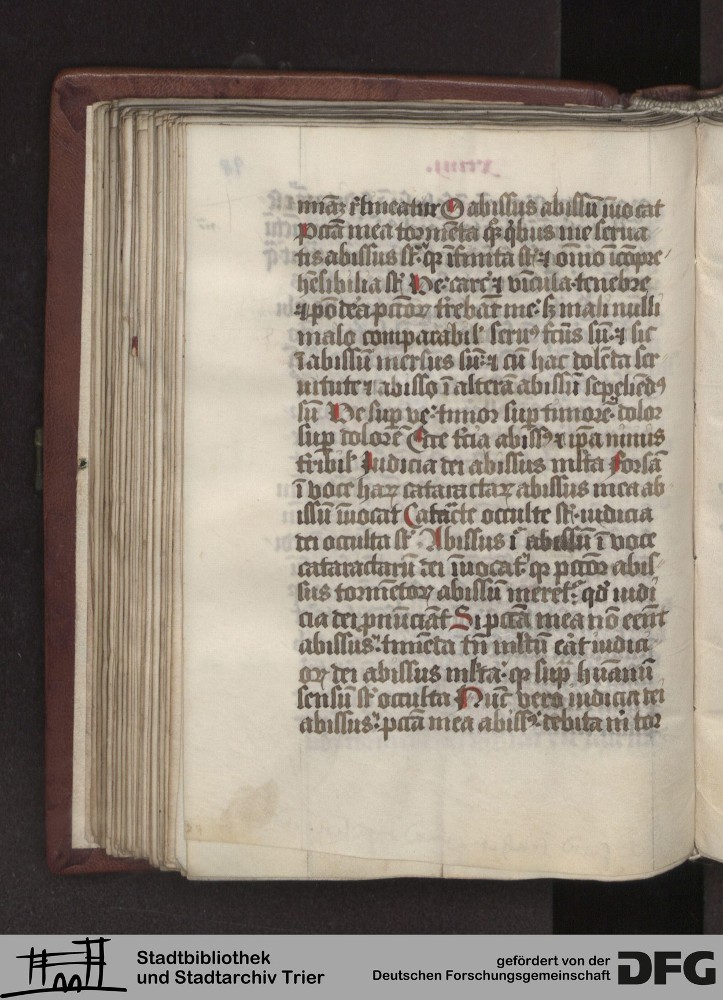 abissus abissū īuocat
pctā mea tormēta qȝ qͥbus me serua
tis abissus st̄ qꝛ īfinita st̄ ⁊ oīno īcōpre
hēsibilia st̄ Ve carc̄ ⁊ vīcula tenebre
mali nulli
malo comparabil̛ seruꝰ fc̄us sū ⁊ sic
ī abissum mersus sū ⁊ cū hac dolēda ser
uitute ⁊ abisso ī alterā abissū sepeliēdꝰ
sū Ve suꝑ ve timor suꝑ timorē dolor
suꝑ dolorē Ecce t̄cia abissꝰ ⁊ ip̄a nimis
t̄ribil̛ Iudicia dei abissus ml̄ta Forsā
ī voce haꝝ cataractaꝝ abissus mea ab
issū īuocat Catarc̄te occulte st̄ iudicia
dei occulta st̄ Abissus ī abissū ī voce
cataractarū dei īuocat qꝛ pcc̄oꝝ abis
sus tormētoꝝ abissū meret̄ qd̄ iudi
cia dei pnūciāt Si pctā mea nō eēnt
abissus timēda tn̄ ml̄tū eāt iudici
oꝝ dei abissus ml̄ta qꝛ suꝑ hūanū
sensū st̄ occulta Nūc vero iudicia dei
abissus pctā mea abissꝰ debita m̄ tor
Stadtbibliothek
und Stadtarchiv Trier
gefördert von der
Deutschen Forschungsgemeinschaft
DFG